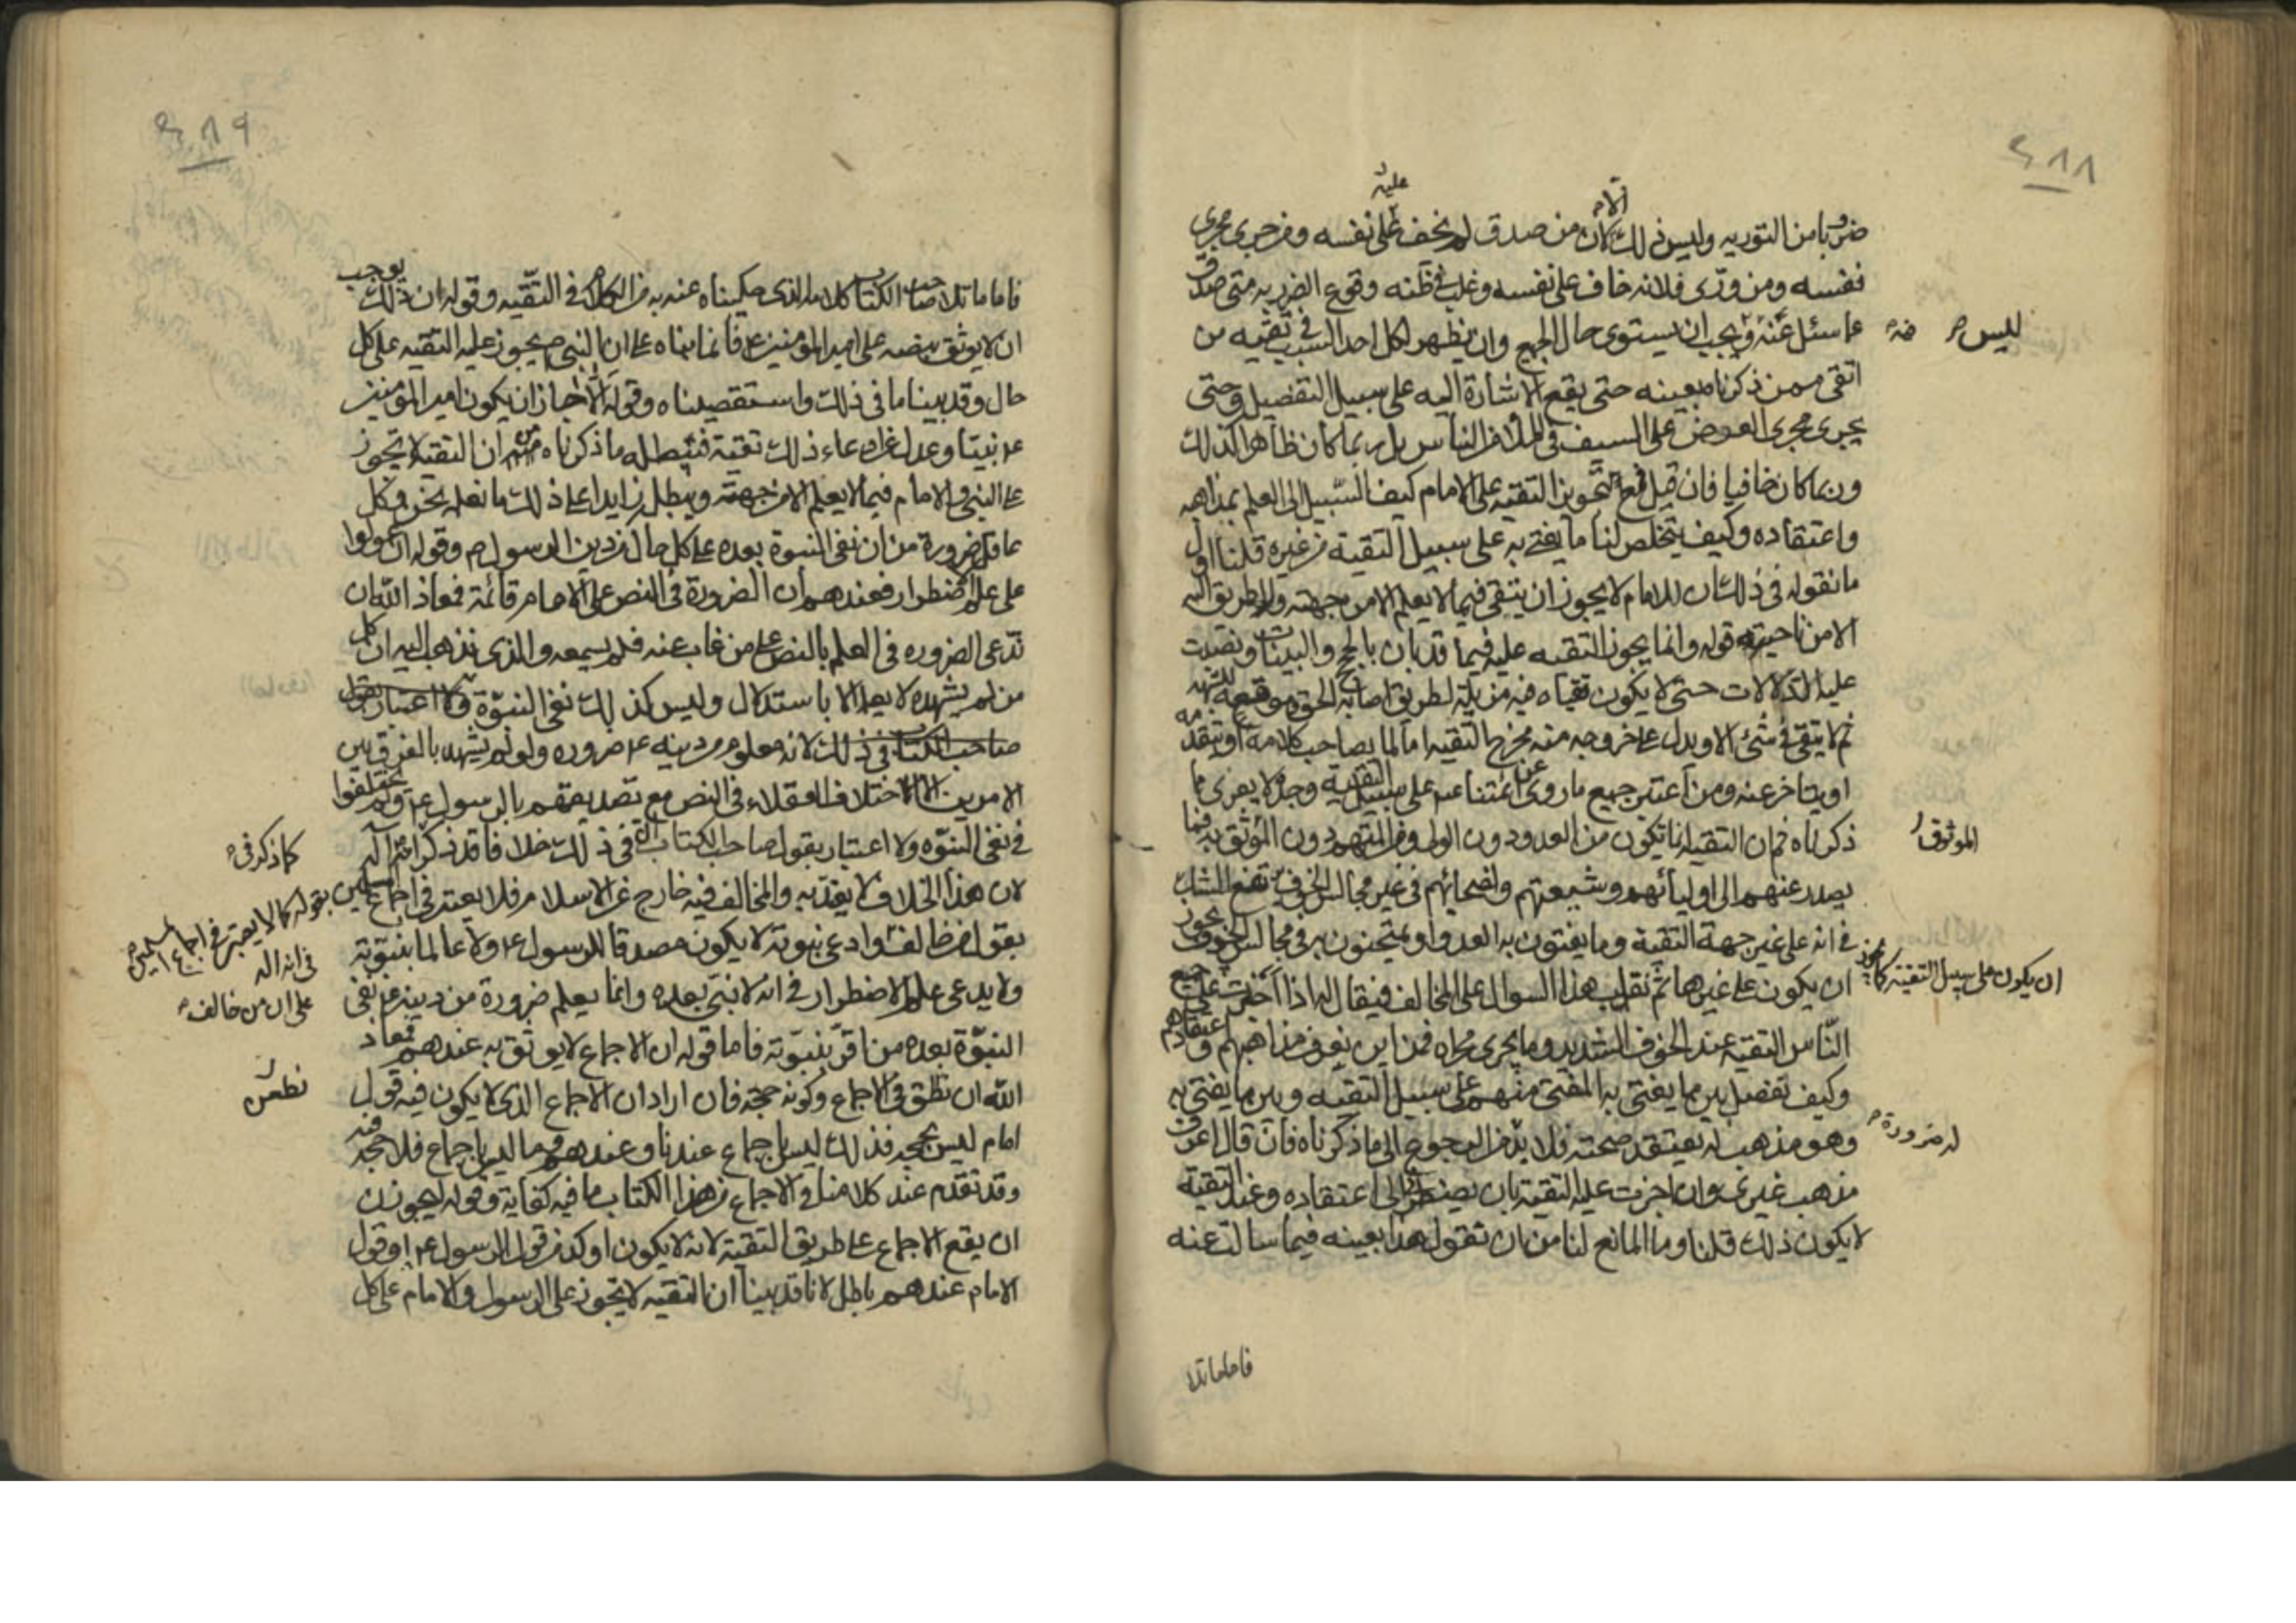 ٤٨٨
ضربا من التوريه وليس ذلك الا لان من صدق لم يخف عليه على نفسه ومن جرى مجرى
نفسه ومن ورّى فلانه خاف على نفسه وغلب في ظنه وقوع الضرر به متى صدق
عما سئل عنه وليس يجب ان يستوى حال الجميع وان يظهر لكل احد السبب في تقيه من
اتقى ممن ذكرناه بعينه حتى يقع الاشارة اليه على سبيل التفصيل وحتى
يجرى مجرى العرض على السيف في الملأ من الناس بل ربما كان ظاهرا كذلك
وربما كان خافيا فان قيل فمع تجويز التقيه على الامام كيف السبيل الى العلم بمذاهبه
واعتقاده وكيف يتخلص لنا ما يفتى به على سبيل التقية من غيره قلنا اول
ما نقوله في ذلك ان الامام لا يجوز ان يتقى فيما لا يعلم الا من جهته ولا طريق اليه
الا من ناحيته قوله وانما يجوز التقيه عليه فيما قد بان بالحجج والبينات ونصبت
عليه الدلالات حتى لا يكون تقياه فيه مزيلة لطريق اصابة الحق وموقعة للشبهه
ثم لا يتقى في شئ الا ويدل على خروجه منه مخرج التقيه اما لما يصاحب كلامه او يتقدمه
او يتاخر عنه ومن اعتبر جميع ما روى عن ائمتنا عم على سبيل التقية وجده لا يعرى مما
ذكرناه ثم ان التقيه انما تكون من العدو دون الولى ومن المتهم دون الموثوق به فيما
يصدر عنهم الى اوليائهم وشيعتهم ونصحائهم في غير مجالس الخوف يرتفع الشك
في انه على غير جهة التقية وما يفتون به العدو او يمتحنون به في مجالس الخوف يجوز
ان يكون على سبيل التقية كما يجوز ان يكون على غيرها ثم نقلب هذا السوال على المخالف فيقال له اذا اجزت على جميع
الناس التقية عند الخوف الشديد وما يجرى مجراه فمن اين يعرف مذاهبهم واعتقادهم
وكيف تفصل بين ما يفتى به المفتى منهم على سبيل التقيه وبين ما يفتى به
وهو مذهب له يعتقد صحته فلا بد ضرورة من الرجوع الى ما ذكرناه فان قال اعرف
مذهب غيرى وان اجزت عليه التقية بان يضطرنى الى اعتقاده وعند التقية
لا يكون ذلك قلنا وما المانع لنا من ان نقول هذا بعينه فيما سالت عنه
فاما ما تلا
٤٨٩
فاما ما تلا صاحب الكتاب كلامه الذى حكيناه عنه به من الكلام في التقيه وقوله ان ذلك يوجب
ان لا يوثق بنصه على امير المؤمنين ع فانما بناه على ان النبى ص يجوز عليه التقيه على كل
حال وقد بينا ما في ذلك واستقصيناه وقوله الا جاز ان يكون امير المؤمنين
عم نبيّا وعدل عن ادعاء ذلك تقية فيبطله ما ذكرناه من ان التقية لا تجوز
على النبى والامام فيما لا يعلم الا من جهته ويبطل زايدا على ذلك ما نعلمه نحن وكل
عاقل ضرورة من ان نفى النبوة بعده على كل حال من دين الرسول ص وقوله ان عولوا
على علم الاضطرار فعندهم ان الضرورة في النص على الامام قائمة فمعاذ الله ان
ندّعى الضروره في العلم بالنص على من غاب عنه فلم يسمعه والذى نذهب اليه ان كل
من لم يشهده لا يعلمه الا باستدلال وليس كذلك نفى النبوّة ولا اعتبار بقول
صاحب الكتاب في ذلك لانه معلوم من دينه عم ضروره ولو لم يشهد بالفرق بين
الامرين الا اختلاف العقلاء في النص مع تصديقهم بالرسول عم ولم يختلفوا
في نفى النبوّه ولا اعتبار بقول صاحب الكتاب انه في ذلك خلافا قد ذكر كما ذكر في انه اله
لان هذا الخلاف لا يعتدّ به والمخالف فيه خارج عن الاسلام فلا يعتبر في اجماع المسلمين بقوله كما لا يعتبر في اجماع المسلمين
بقول من خالف في انه اله على ان من خالف وادعى نبوته لا يكون مصدقا للرسول عم ولا عالما بنبوّته
ولا يدعى علم الاضطرار في انه لا نبى بعده وانما يعلم ضرورة من دينه عم نفى
النبوّة بعده من اقرّ بنبوّته فاما قوله ان الاجماع لا يوثق به عندهم فمعاذ
الله ان نطعن في الاجماع وكونه حجة فان اراد ان الاجماع الذى لا يكون فيه قول
امام ليس بحجه فذلك ليس باجماع عندنا وعندهم وما ليس باجماع فلا حجة فيه
وقد تقدم عند كلامنا في الاجماع من هذا الكتاب ما فيه كفاية وقوله ليجوزن
ان يقع الاجماع على طريق التقية لانه لا يكون اوكد من قول الرسول عم او قول
الامام عندهم باطل لانا قد بينا ان التقيه لا تجوز على الرسول والامام على كل